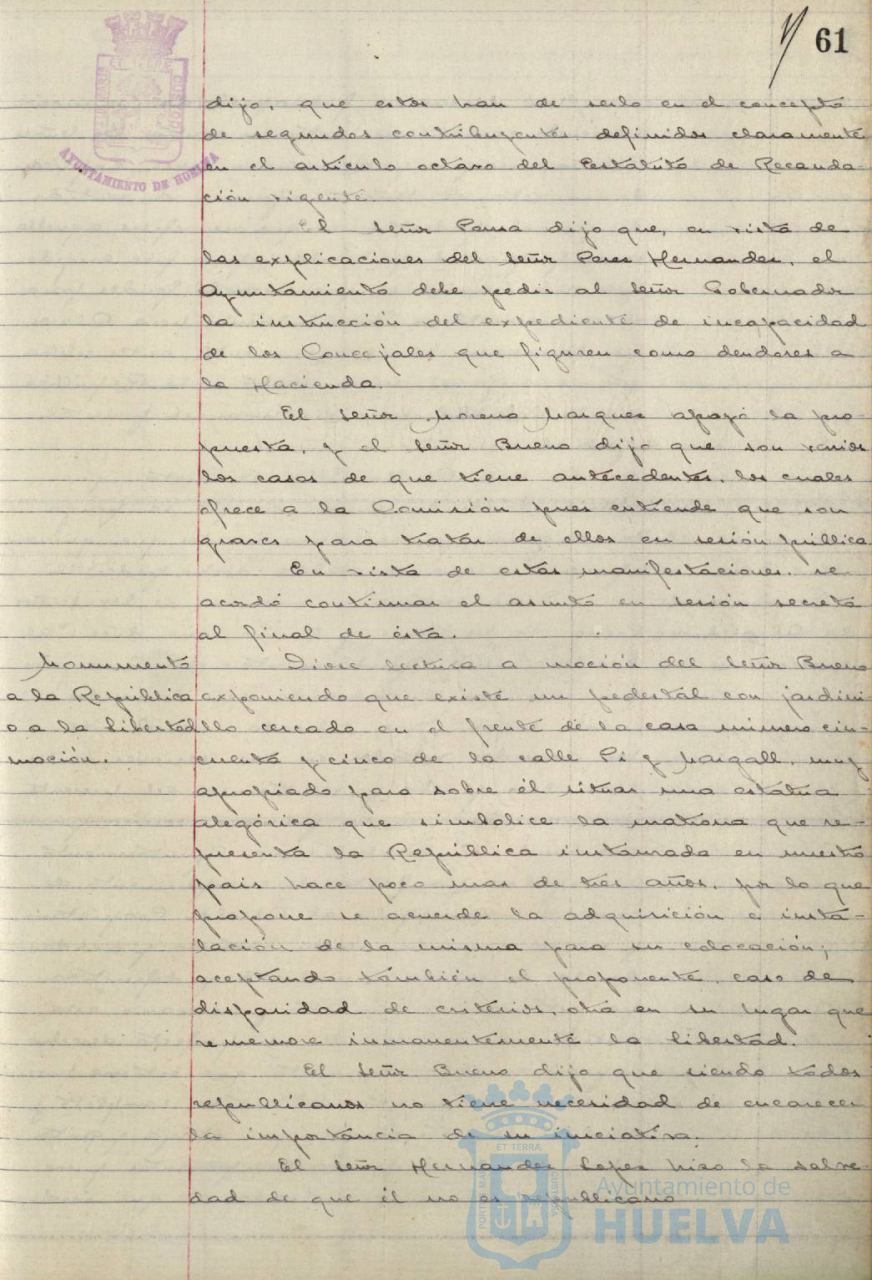 61
AYUNTAMIENTO DE HUELVA
dijo, que estos han de serlo en el concepto
de segundos contribuyentes, definidos claramente
en el artículo octavo del Estatuto de Recauda-
ción vigente.
El señor Ponsa dijo que, en vista de
las explicaciones del señor Peres Hernandes, el
Ayuntamiento debe pedir al señor Gobernador
la instrucción del expediente de incapacidad
de los Concejales que figuren como deudores a
la Hacienda.
El señor Moreno Marques apoyó la pro
puesta, y el señor Bueno dijo que son varios
los casos de que tiene antecedentes, los cuales
ofrece a la Comisión pues entiende que son
graves para tratar de ellos en sesión pública
En vista de estas manifestaciones, se
acordó continuar el asunto en sesión secreta
al final de ésta.
Monumento
a la República
o a la libertad
moción.
Diose lectura a moción del señor Bueno
exponiendo que existe un pedestal con jardini
llo cercado en el frente de la casa número cin-
cuenta y cinco de la calle Pi y Margall, muy
apropiado para sobre él situar una estatua
alegórica que simbolice la matrona que re-
presenta la República instaurada en nuestro
pais hace poco mas de tres años, por lo que
propone se acuerde la adquisición e insta-
lación de la misma para su colocación;
aceptando también el proponente, caso de
disparidad de criterios, otra en su lugar que
rememore inmanentemente la libertad.
El señor Bueno dijo que siendo todos
republicanos no tiene necesidad de encarecer
la importancia de su iniciativa.
El señor Hernandes Lopes hiso la salve-
dad de que él no es republicano
Ayuntamiento de
HUELVA